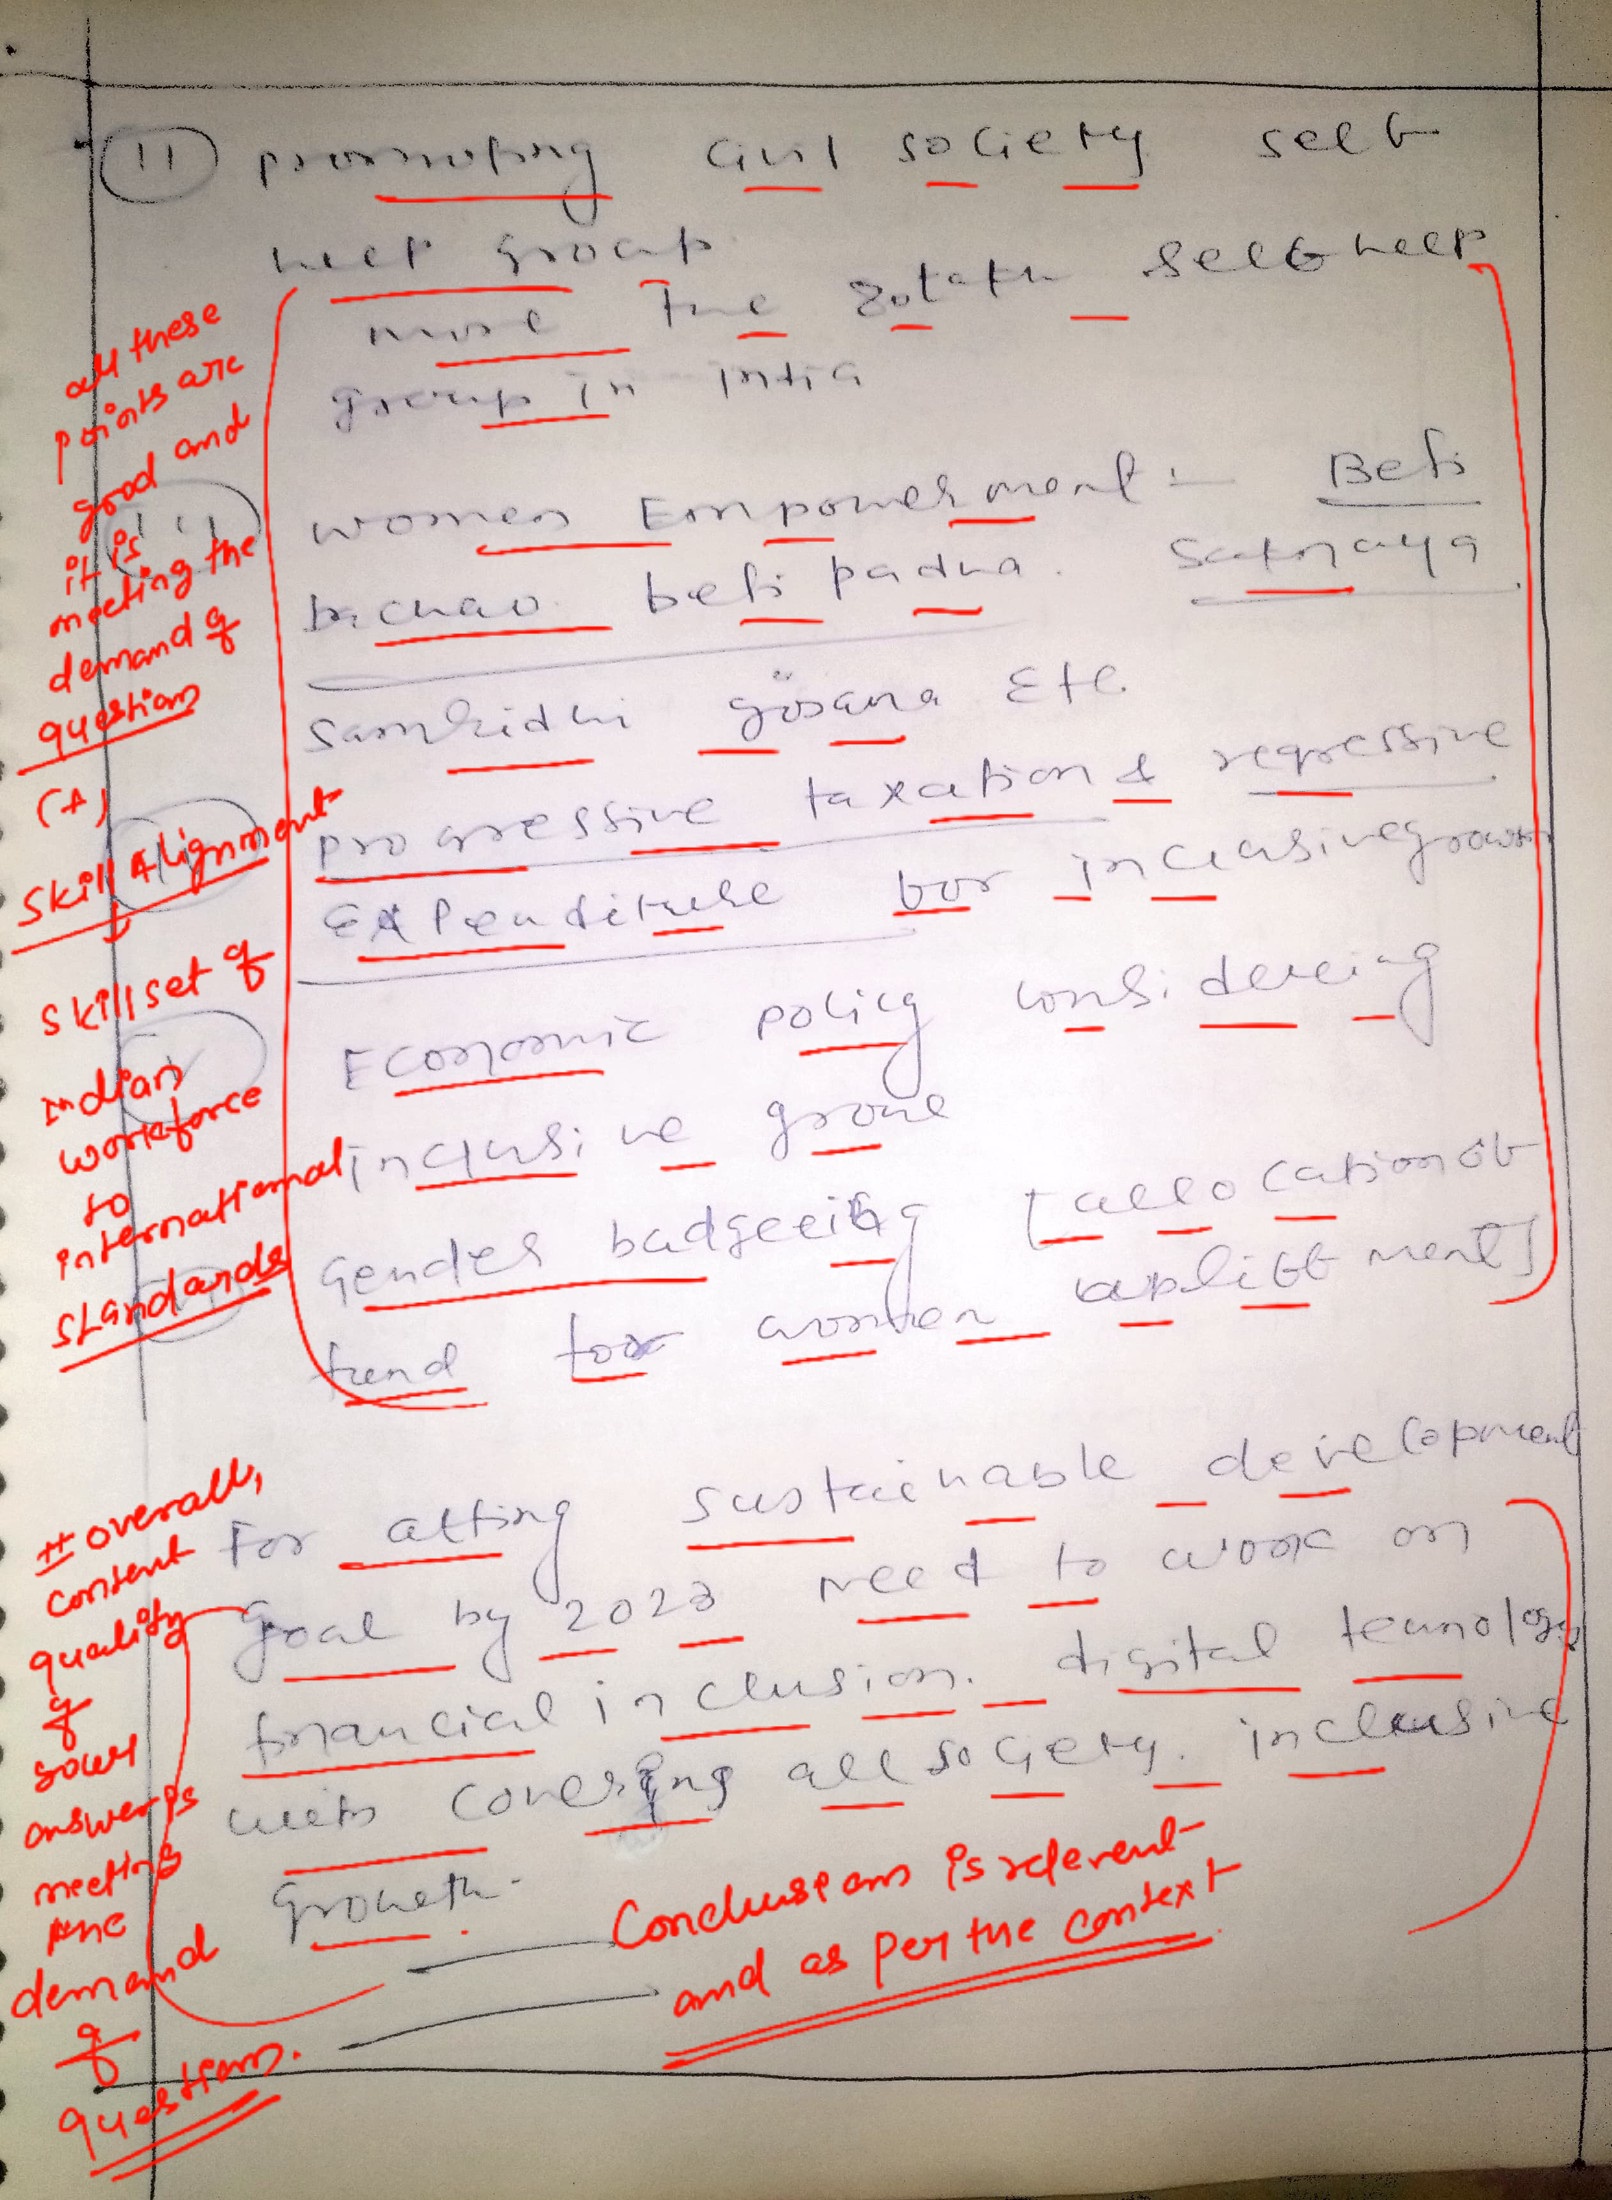 11 promoting civil society self
help group
more the lotakh self help
group in intia
women Empowerment - Beti
bachao beti padha. Suknaya
samridhi yosana Etc.
progressive taxation & regressive
Expenditure for inclusive growth
Economic policy considering
inclusive grove
Gender badgeting [allocation of
fund for women upliftment]
For atting sustainable development
goal by 2023 need to work on
financial inclusion. digital tecnology
with covering all society. inclusive
groweth.
all these
points are
good and
it is
meeting the
demand of
question
(+)
Skill Alignment
↓
skillset of
Indian
workforce
to
international
standards
# overall,
content
quality
of
your
answer is
meeting
the
demand
of
question.
Conclusion is relevent
and as per the context